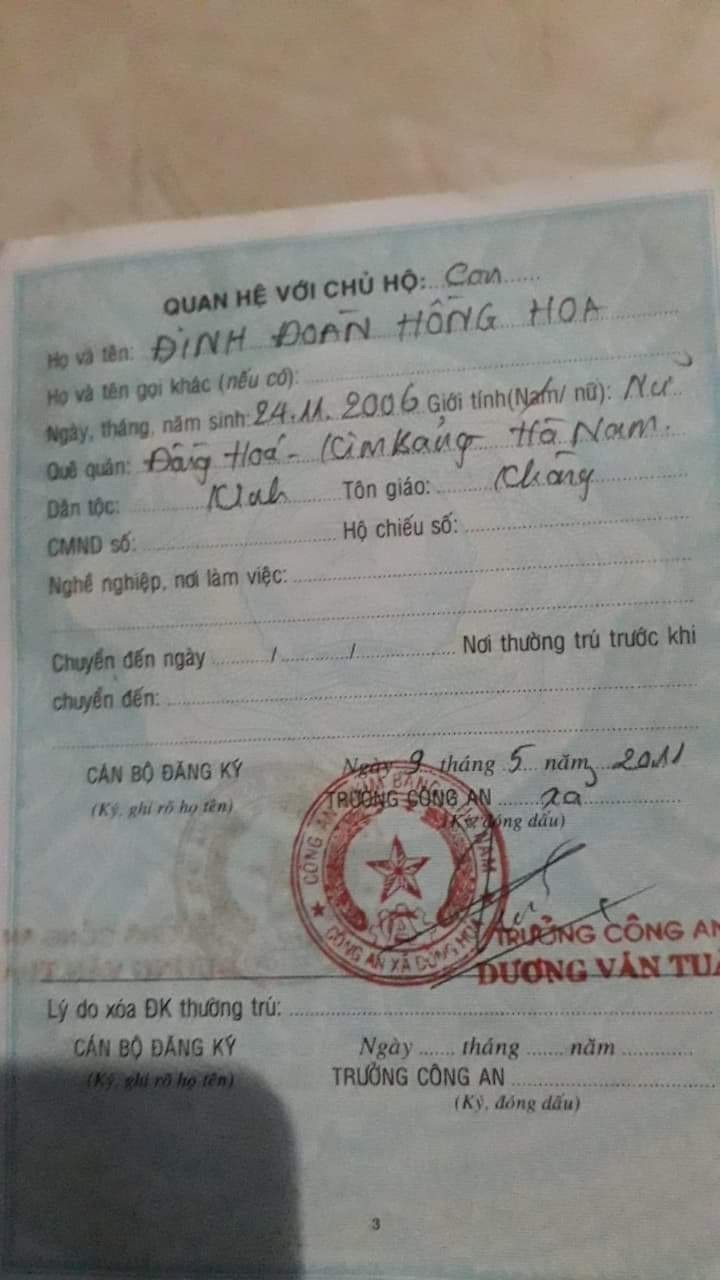 QUAN HỆ VỚI CHỦ HỘ: Con
Họ và tên: ĐINH ĐOÀN HỒNG HOA
Họ và tên gọi khác (nếu có):
Ngày, tháng, năm sinh: 24.11.2006 Giới tính (Nam/ nữ): Nữ
Quê quán: Đồng Hoá - Kim Bảng - Hà Nam.
Dân tộc: Kinh Tôn giáo: Không
CMND số: Hộ chiếu số:
Nghề nghiệp, nơi làm việc:
Chuyển đến ngày / / Nơi thường trú trước khi
chuyển đến:
CÁN BỘ ĐĂNG KÝ Ngày 9 tháng 5 năm 2011
(Ký, ghi rõ họ tên) TRƯỞNG CÔNG AN xã
(Ký, đóng dấu)
CÔNG AN XÃ ĐỒNG HÓA
TRƯỞNG CÔNG AN
DƯƠNG VĂN
Lý do xóa ĐK thường trú:
CÁN BỘ ĐĂNG KÝ Ngày tháng năm
(Ký, ghi rõ họ tên) TRƯỞNG CÔNG AN
(Ký, đóng dấu)
3